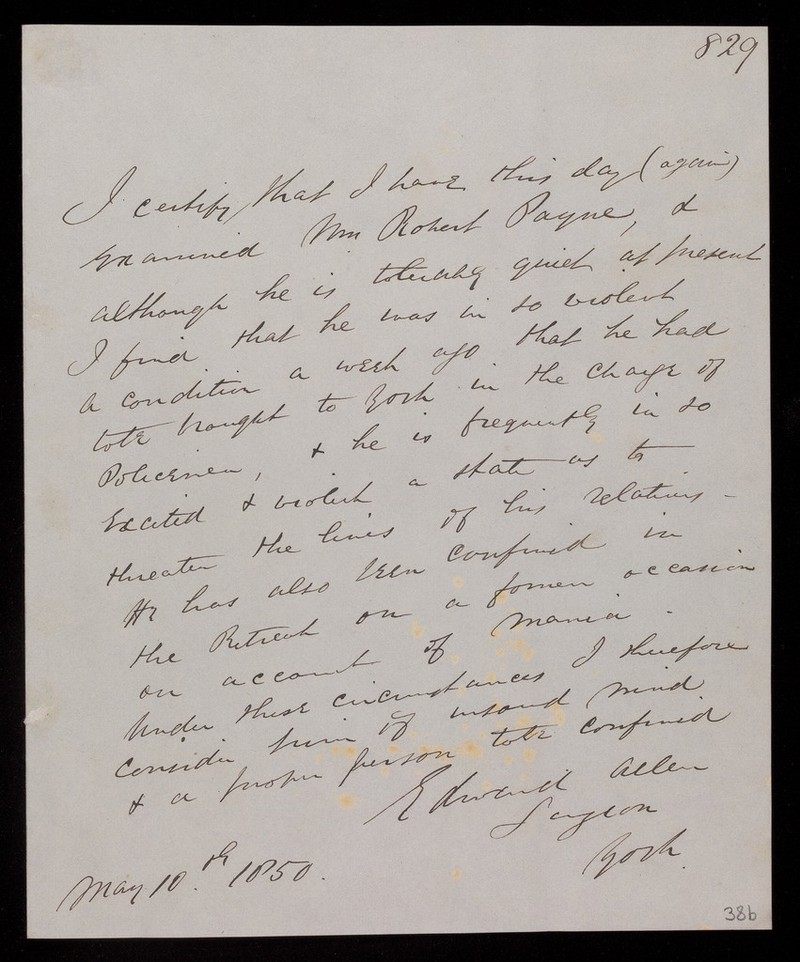 829
I certify that I have this day (again)
examined Wm Robert Payne, &
although he is tolerably quiet at present
I find that he was in so violent
a condition a week ago that he had
to be brought to York in the charge of
Policemen, & he is frequently in so
excited & violent a state as to
threaten the lives of his relatives -
He has also been confined in
the Retreat on a former occasion
on account of mania.
Under these circumstances I therefore
consider him of unsound mind
& a proper person to be confined
Edward Allen
Surgeon
York.
May 10.th 1850.
38b